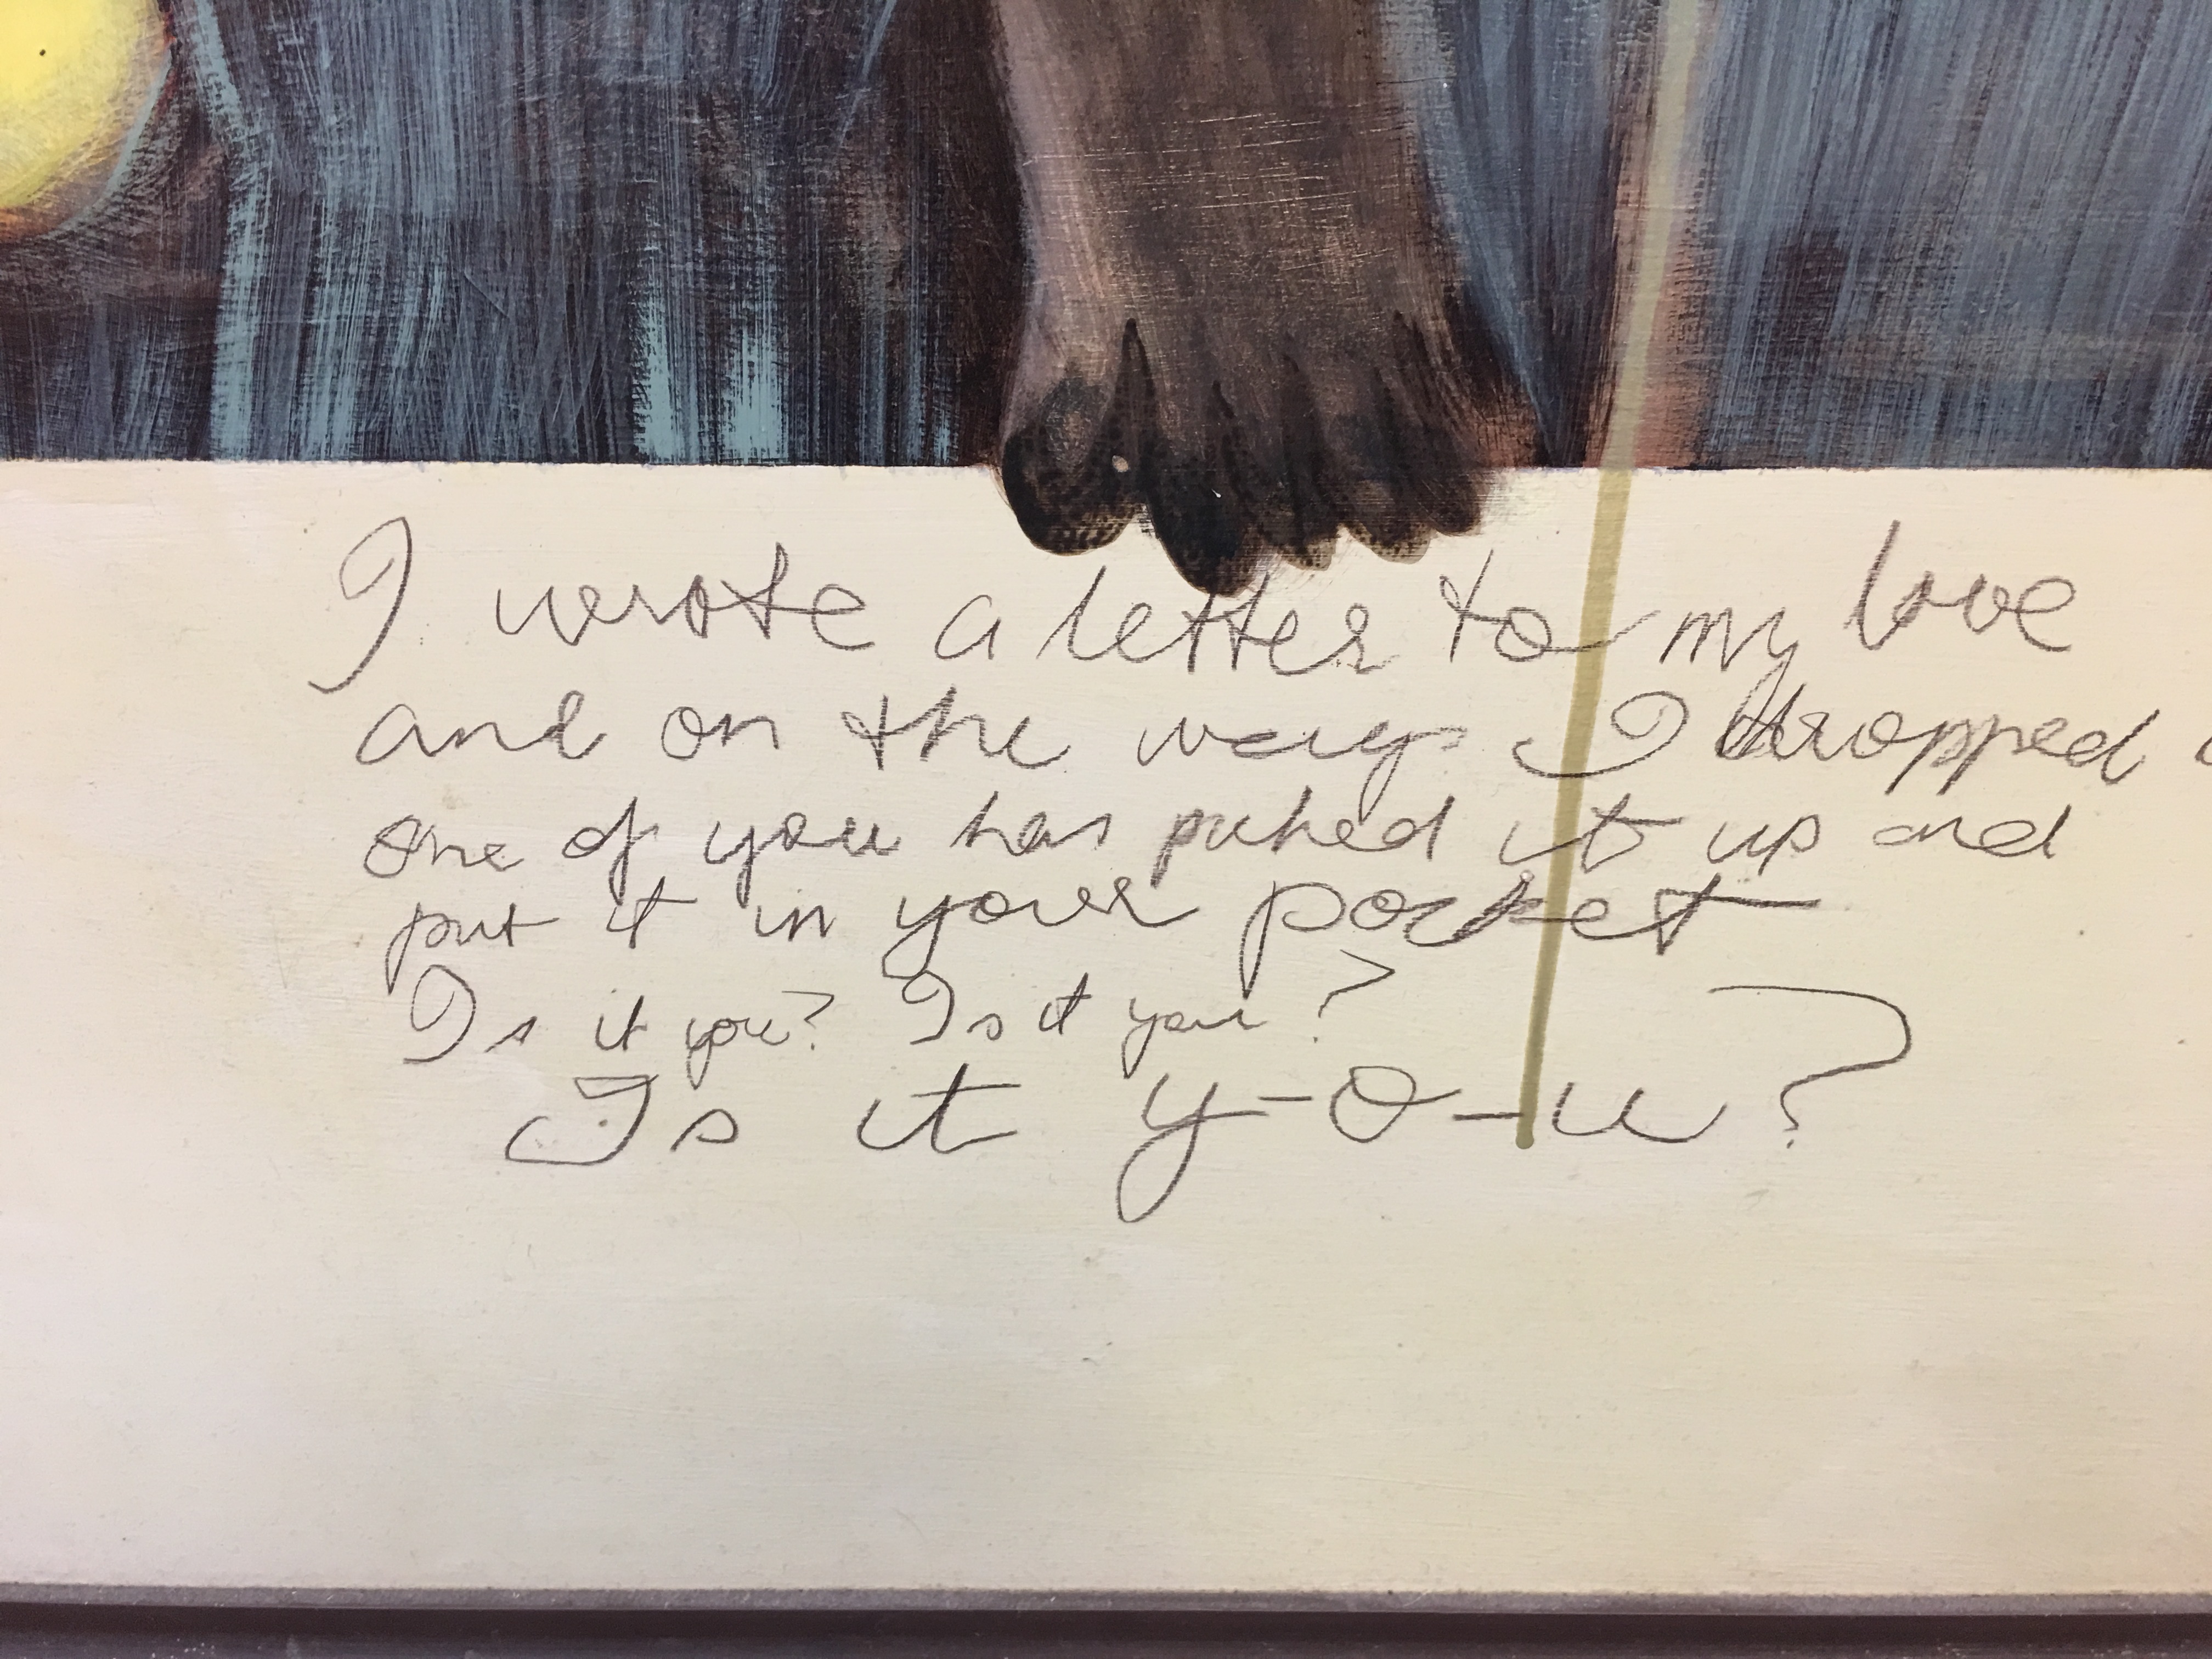 I wrote a letter to my love
and on the way I dropped
one of you has picked it up and
put it in your pocket
Is it you? Is it you?
Is it y-o-u?